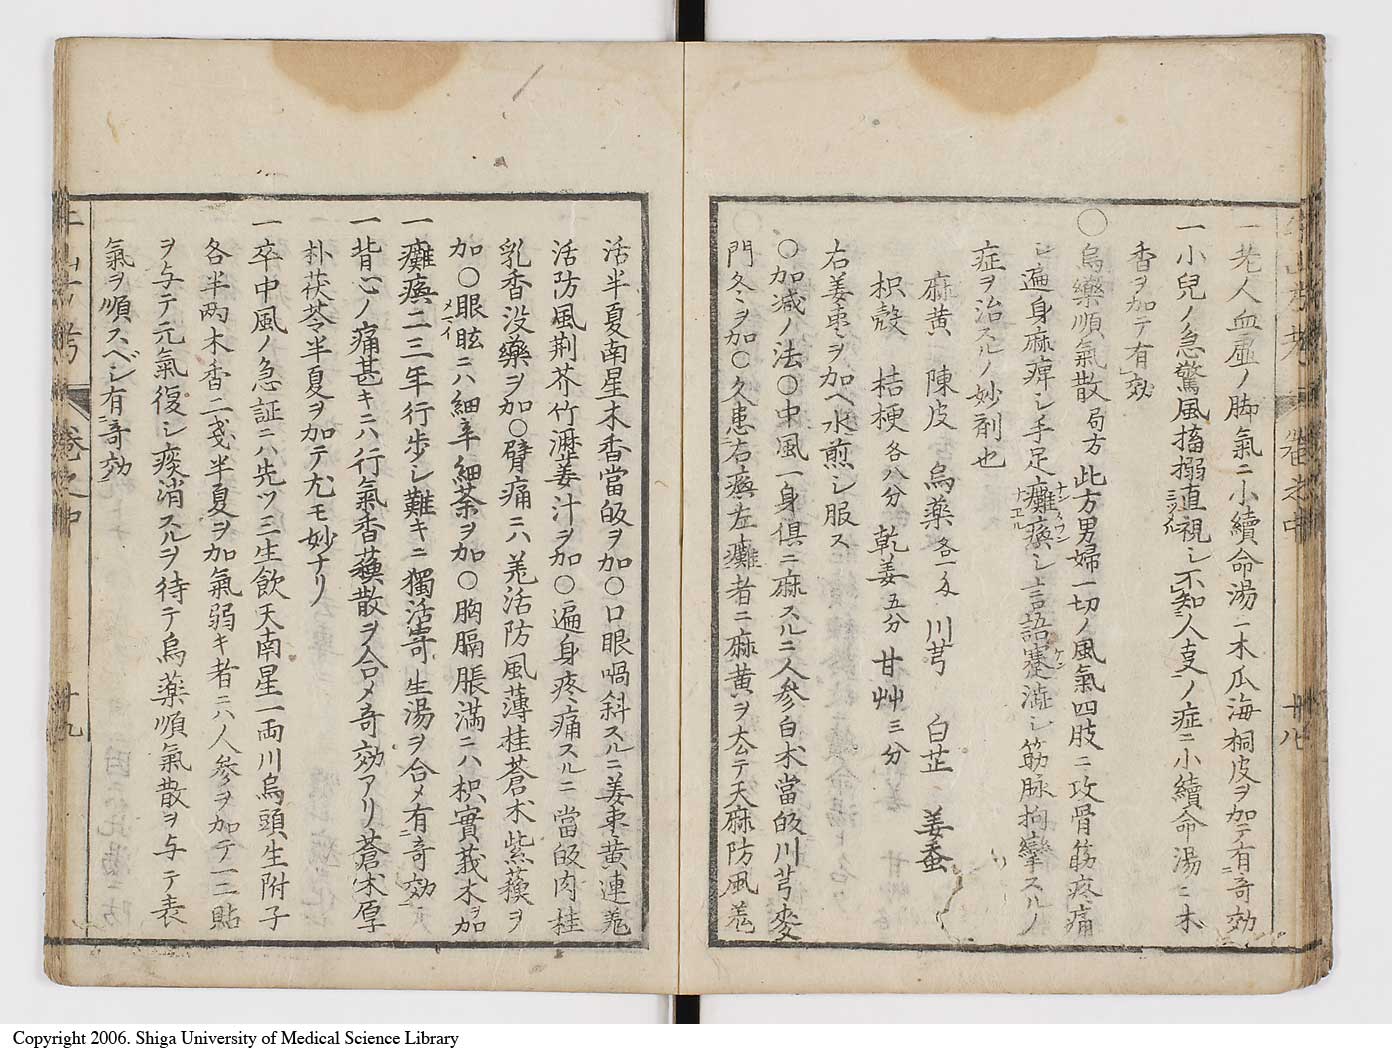 一老人血虚ノ脚氣ニ小續命湯ニ木瓜海桐皮ヲ加テ有奇効
一小兒ノ急驚風搐搦直視シ不知人支ノ症ニ小續命湯ニ木
香ヲ加テ有効
〇烏藥順氣散局方此方男婦一切ノ風氣四肢ニ攻骨筋疼痛
シ遍身麻痺シ手足癱瘓シ言語蹇澁シ筋脉拘攣スルノ
症ヲ治スルノ妙剤也
麻黄 陳皮 烏薬各一匁 川芎 白芷 姜蚕
枳殻 桔梗各八分 乾姜五分 甘艸三分
右姜棗ヲ加ヘ水煎シ服ス
〇加減ノ法〇中風一身倶ニ麻スルニ人参白朮當皈川芎麥
門冬ヲ加〇久患右瘓左癱者ニ麻黄ヲ去テ天麻防風羗
活半夏南星木香當皈ヲ加〇口眼喎斜スルニ姜棗黄連羗
活防風荆芥竹瀝姜汁ヲ加〇遍身疼痛スルニ當皈肉桂
乳香没藥ヲ加〇臂痛ニハ羗活防風薄桂蒼朮紫蘓ヲ
加〇眼眩ニハ細辛細茶ヲ加〇胸膈脹満ニハ枳實莪朮ヲ加
一癱瘓二三年行歩シ難キニ獨活寄生湯ヲ合メ有奇効
一背心ノ痛甚キニハ行氣香蘓散ヲ合メ奇効アリ蒼朮厚
朴茯苓半夏ヲ加テ尤モ妙ナリ
一卒中風ノ急証ニハ先ツ三生飲天南星一両川烏頭生附子
各半两木香二戔半夏ヲ加氣弱キ者ニハ人参ヲ加テ一二貼
ヲ与テ元氣復シ痰消スルヲ待テ烏薬順氣散ヲ与テ表
氣ヲ順スベシ有奇効
巻之中 十九